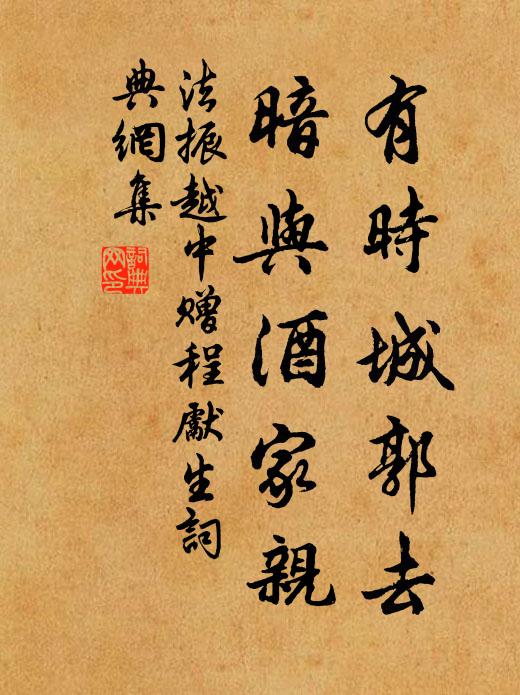 有時城郭去
暗與酒家親
法振越中贈程獻生詞
典網集
詞典網印